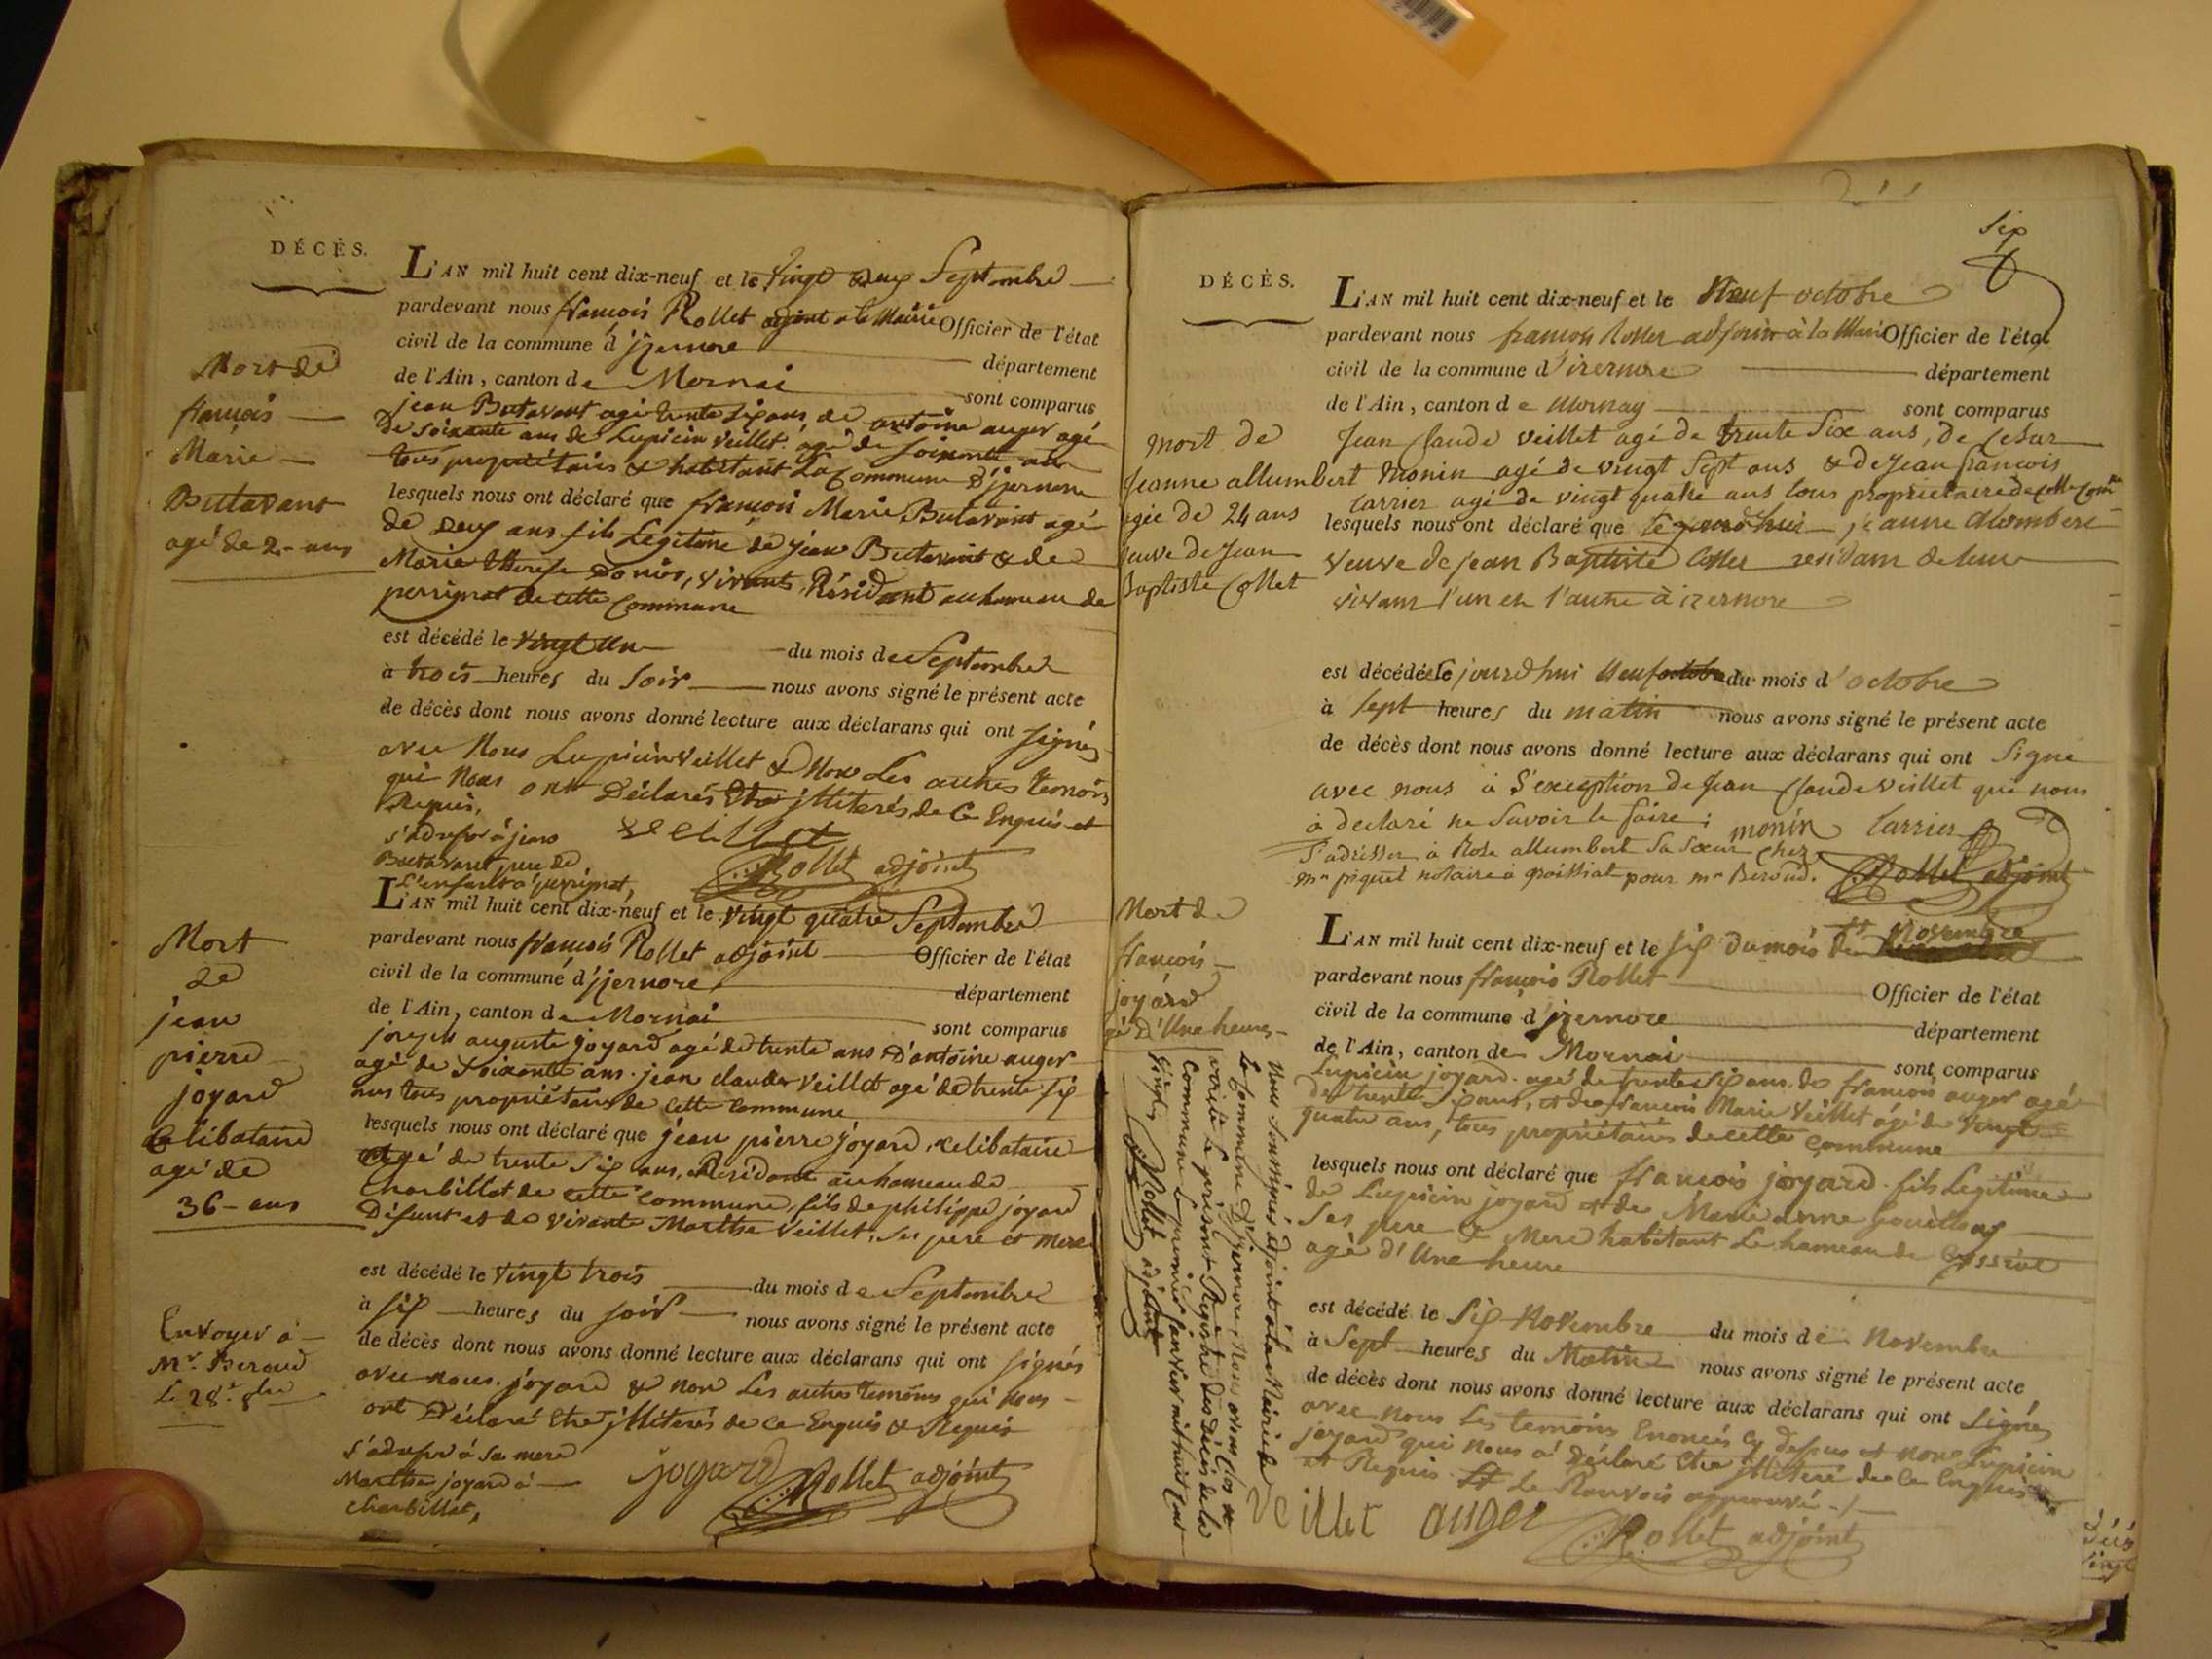 DÉCÈS.
L'AN mil huit cent dix-neuf et le vingt deux Septembre
pardevant nous françois Rollet adjoint a la Mairie Officier de l'état
civil de la commune d'jzernore département
de l'Ain, canton de Mornai sont comparus
jean Butavant agé trente six ans, de antoine auger agé
de soixante ans de Lupicin Veillet, agé de soixante ans
tous propriétaires & habitant La Commune D'jzernore
lesquels nous ont déclaré que françois Marie Butavant agé
de Deux ans fils Légitime de jean Butavant & de
Marie therese Donier, vivants, Résidant au hameau de
perrignat de cette Commune
est décédé le vingt un du mois de Septembre
à trois heures du soir nous avons signé le présent acte
de décès dont nous avons donné lecture aux déclarans qui ont signés
avec Nous Lupicin Veillet & Non Les autres temoins
qui Nous ont Déclarés Etre jlliterés de Ce Enquis et
Requis,
s'adresser à jean
Butavant pere de
L'enfant à perrignat,
Veillet
Rollet adjoint
Mort de
françois
Marie
Butavant
agé de 2 ans
L'AN mil huit cent dix-neuf et le vingt quatre Septembre
pardevant nous françois Rollet adjoint Officier de l'état
civil de la commune d'jzernore département
de l'Ain, canton de Mornai sont comparus
joseph auguste joyard agé de trente ans D'antoine auger
agé de soixante ans. jean claude Veillet agé de trente six
ans tous propriétaires de cette Commune
lesquels nous ont déclaré que jean pierre joyard, celibataire
agé de trente six ans, Résidant au hameau de
Charbillat de cette Commune, fils de philippe joyard
Défunt et de vivante Marthe Veillet, ses pere et mere
est décédé le vingt trois du mois de Septembre
à six heures du soir nous avons signé le présent acte
de décès dont nous avons donné lecture aux déclarans qui ont signés
avec nous joyard & non Les autres temoins qui Nous
ont Déclaré Etre jlliterés de Ce Enquis & Requis
s'adresser à sa mere
Marthe joyard à
Charbillat,
joyard Rollet adjoint
Mort
de
jean
pierre
joyard
Celibataire
agé de
36 ans
Envoyer à
Mr. Beroud
Le 28. 8bre
Six
6
DÉCÈS.
L'AN mil huit cent dix-neuf et le Neuf octobre
pardevant nous françois Rollet adjoint à la Mairie Officier de l'état
civil de la commune d'izernore département
de l'Ain, canton de Mornay sont comparus
Jean Claude veillet agé de trente Six ans, de Cesar
Monin agé de vingt Sept ans & de Jean françois
Carrier agé de vingt quatre ans tous propriétaire de cette Comne
lesquels nous ont déclaré que jeanne Alombert
veuve de jean Baptiste Collet residant de leur
vivant l'un et l'autre à izernore
est décédée le jourd'hui Neuf octobre du mois d'octobre
à sept heures du matin nous avons signé le présent acte
de décès dont nous avons donné lecture aux déclarans qui ont Signé
avec nous à l'exception de Jean Claude Veillet qui nous
à declaré ne Savoir le faire; monin Carrier
S'adresser à Rose allumbert Sa Sœur chez
mr piquet notaire à poissiat pour mr Beroud. Rollet adjoint
mort de
Jeanne allumbert
agée de 24 ans
veuve de Jean
Baptiste Collet
L'AN mil huit cent dix-neuf et le six du mois de Novembre
pardevant nous françois Rollet Officier de l'état
civil de la commune d'jzernore département
de l'Ain, canton de Mornai sont comparus
Lupicin joyard agé de trente six ans. de françois auger agé
de trente six ans, et de françois Marie Veillet agé de vingt
quatre ans, tous propriétaires de cette Commune
lesquels nous ont déclaré que françois joyard fils Legitime
de Lupicin joyard et de Marie anne
ses pere & Mere habitant Le hameau de
agé d'Une heure
est décédé le Six Novembre du mois de Novembre
à Sept heures du Matin nous avons signé le présent acte
de décès dont nous avons donné lecture aux déclarans qui ont Signés
avec nous Les temoins Enoncés Cy dessus et non Lupicin
joyard qui nous à Déclaré Etre jlliteré de Ce Enquis
et Requis Le Renvois approuvé
veillet auger Rollet adjoint
Mort de
françois
joyard
agé D'Une heure
Nous soussignés adjoint à la Mairie de
La Commune D'jzernore, Nous avons Clos et
arreté Le present Registre des Décès de la
Commune Le premier janvier mil huit Cent
vingt, Rollet adjoint